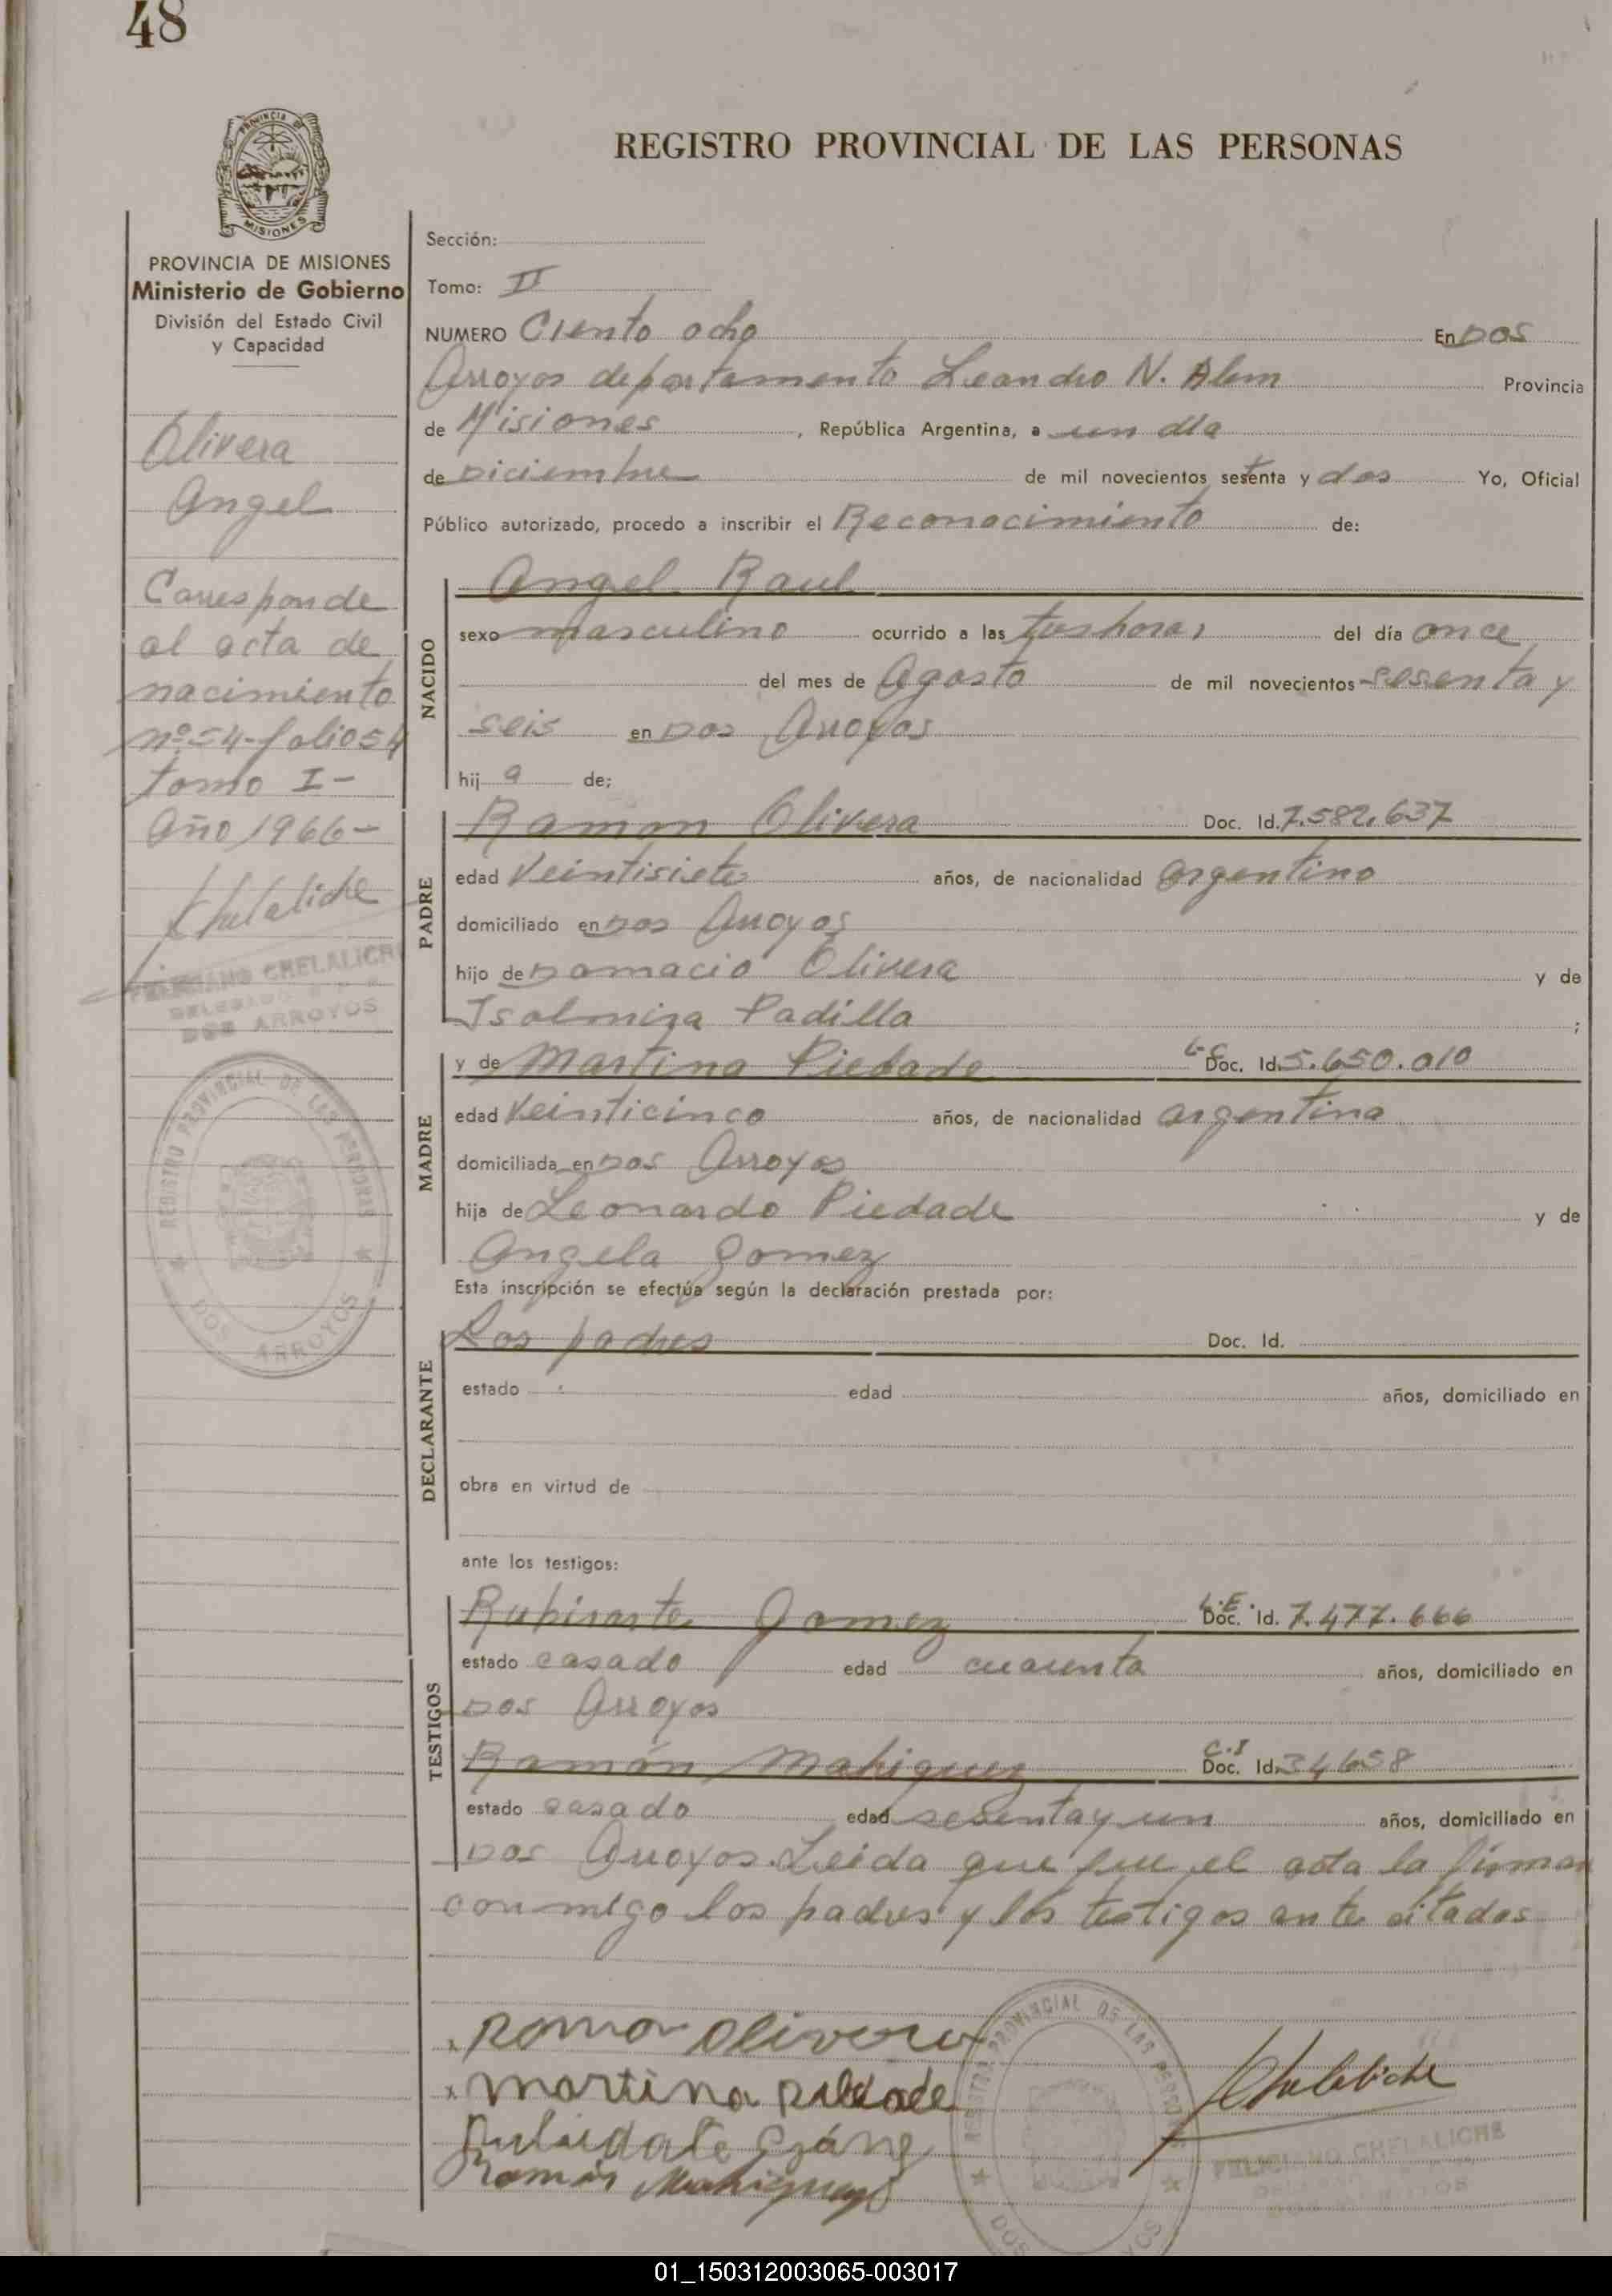 48
REGISTRO PROVINCIAL DE LAS PERSONAS
PROVINCIA DE MISIONES
Ministerio de Gobierno
División del Estado Civil
y Capacidad
Olivera
Angel
Corresponde
al acta de
nacimiento
nº 54-folio 54
tomo I-
Año 1966-
Chelaliche
FELICIANO CHELALICHE
DELEGADO
DOS ARROYOS
REGISTRO PROVINCIAL DE LAS PERSONAS
DOS ARROYOS
Sección:
Tomo: II
NUMERO Ciento ocho En Dos
Arroyos departamento Leandro N. Alem Provincia
de Misiones, República Argentina, a un día
de Diciembre de mil novecientos setenta y dos Yo, Oficial
Público autorizado, procedo a inscribir el Reconocimiento de:
NACIDO
Angel Raul
sexo masculino ocurrido a las tres horas del día once
del mes de Agosto de mil novecientos sesenta y
seis en Dos Arroyos
hij o de;
PADRE
Ramon Olivera Doc. Id. 7.582.637
edad Veintisiete años, de nacionalidad argentino
domiciliado en Dos Arroyos
hijo de Domacio Olivera y de
Isolmira Padilla ;
MADRE
y de Martina Piedade L-C Doc. Id. 5.650.010
edad Veinticinco años, de nacionalidad argentina
domiciliada en Dos Arroyos
hija de Leonardo Piedade y de
Angela Gomez
Esta inscripción se efectúa según la declaración prestada por:
DECLARANTE
Los padres Doc. Id.
estado edad años, domiciliado en
obra en virtud de
ante los testigos:
TESTIGOS
Gomez L.E. Doc. Id. 7.477.666
estado casado edad cuarenta años, domiciliado en
Dos Arroyos
Ramón Mahiquez C.I Doc. Id. 34658
estado casado edad sesenta y un años, domiciliado en
Dos Arroyos. Leida que fue el acta la firman
conmigo los padres y los testigos ante citados
x Ramon Olivera
x martina Piedade
Ramón Mahiquez
Chelaliche
REGISTRO PROVINCIAL DE LAS PERSONAS
FELICIANO CHELALICHE
01_150312003065-003017